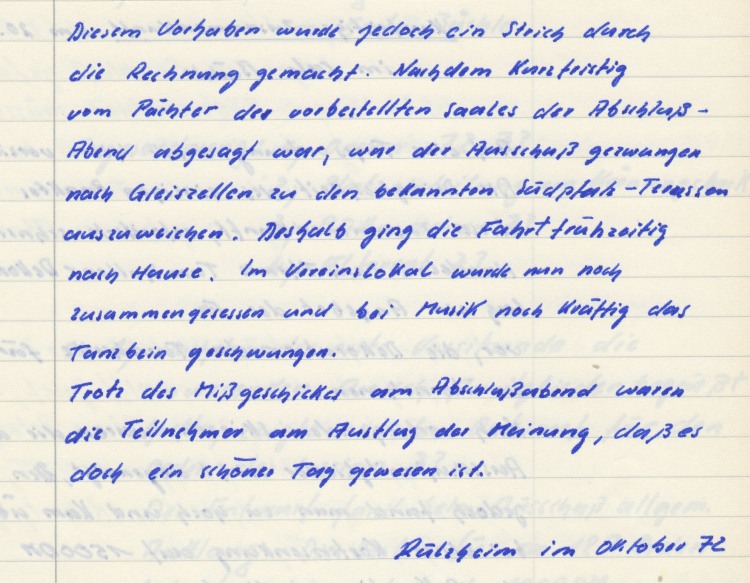 Diesem Vorhaben wurde jedoch ein Strich durch
die Rechnung gemacht. Nachdem Kurzfristig
vom Pächter des vorbestellten Saales der Abschluß-
Abend abgesagt war, war der Ausschuß gezwungen
nach Gleiszellen zu den bekannten Südpfalz-Terassen
auszuweichen. Deshalb ging die Fahrt frühzeitig
nach Hause. Im Vereinslokal wurde nun noch
zusammengesessen und bei Musik noch Kräftig das
Tanzbein geschwungen.
Trotz des Mißgeschickes am Abschlußabend waren
die Teilnehmer am Ausflug der Meinung, daß es
doch ein schöner Tag gewesen ist.
Rülzheim im Oktober 72